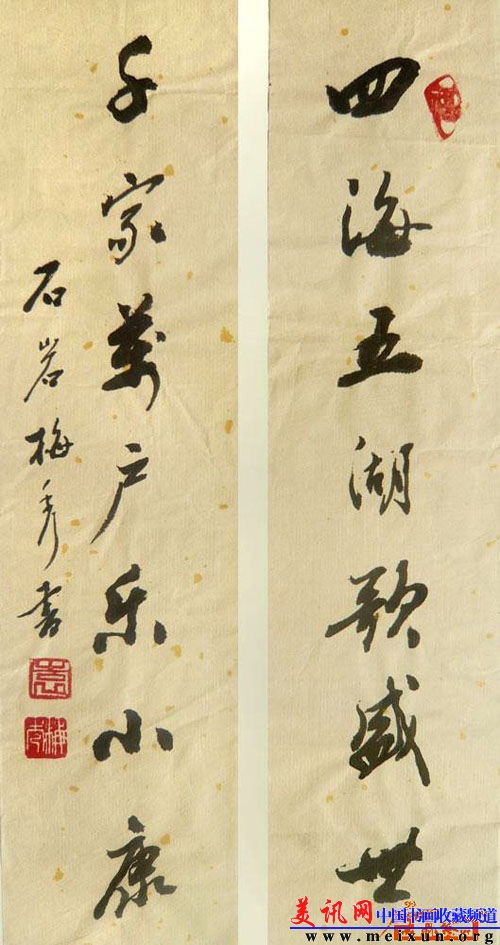 四海五湖歌盛世
千家萬户乐小康
石岩梅秀书
美讯网 中国书画收藏频道
www.meixun.org